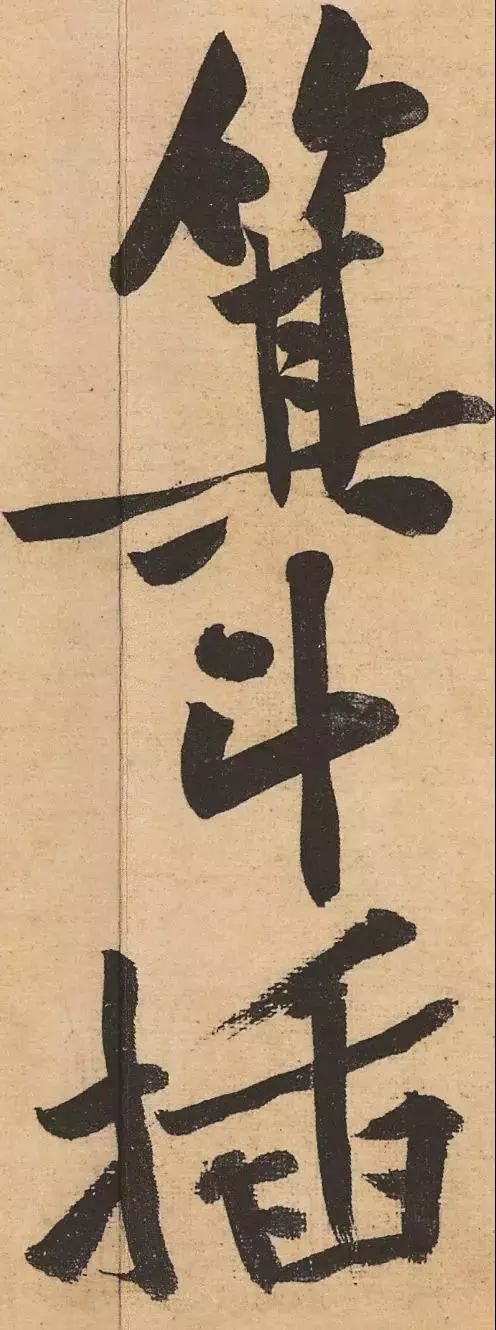 箕斗插